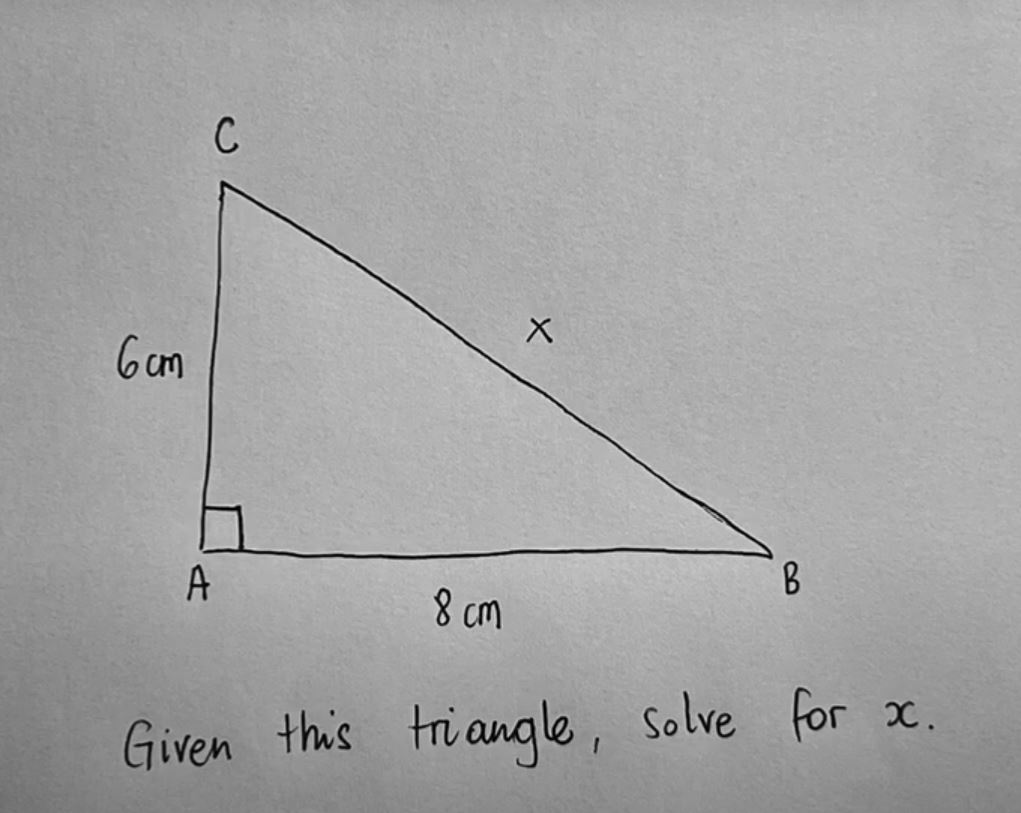 C
x
6cm
A
B
8 cm
Given this triangle, solve for x.